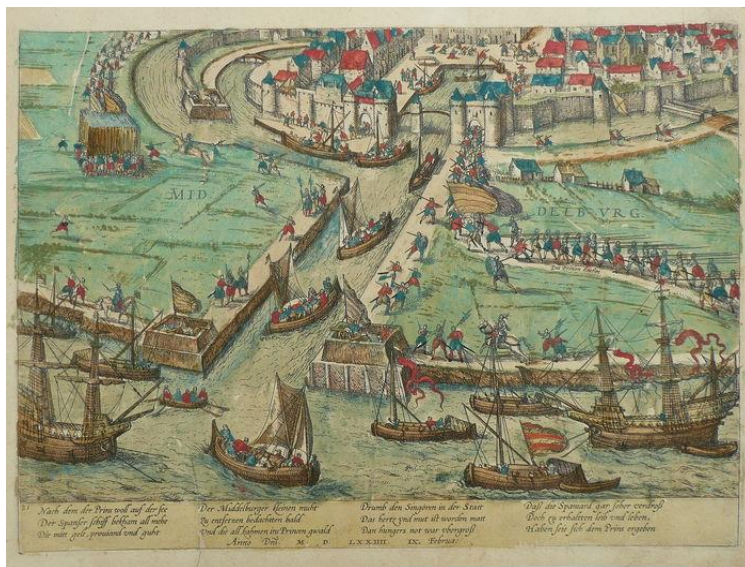 MID
DELBVRG.
Nach dem der Printz woll auf der see
Der Spanser schiff bekham all mehe
Die mitt gelt, prouiand vnd guht
Der Middelburger kleinen muht
Zu entsetzen bedachten bald
Vnd die all kahmen ins Printzen gwald
Drumb den Sengoren in der Statt
Das hertz vnd mut ist worden matt
Dan hungers not war vbergroß
Daß die Spaniard gar seher verdroß
Doch zu erhaltten leib vnd leben,
Haben seie sich dem Printz ergeben
Anno Dnĩ. M. D. LXXIIII IX. Februa: